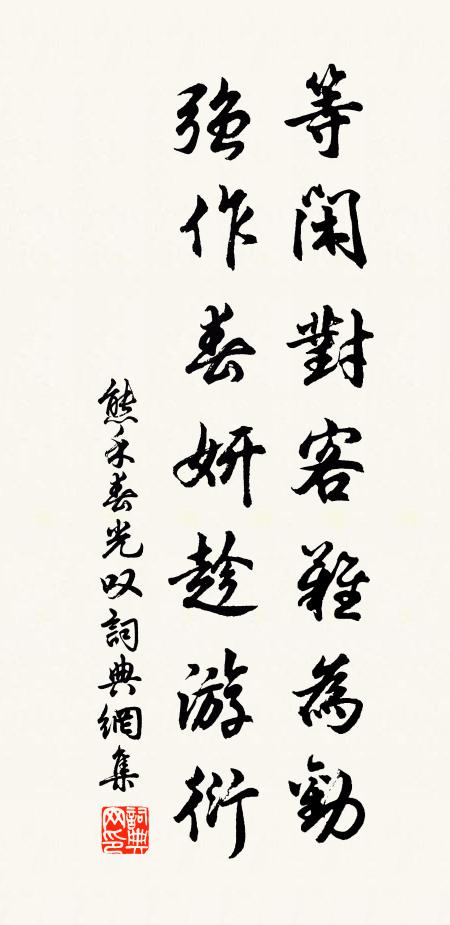 等閑對客難為勸
強作春妍趁游衍
熊禾春光叹詞典網集
詞典网印